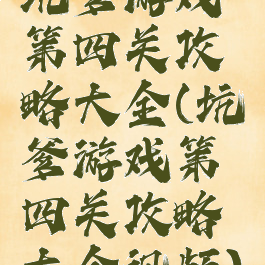 坑爹游戏
第四关攻
略大全(坑
爹游戏第
四关攻略
大全视频)